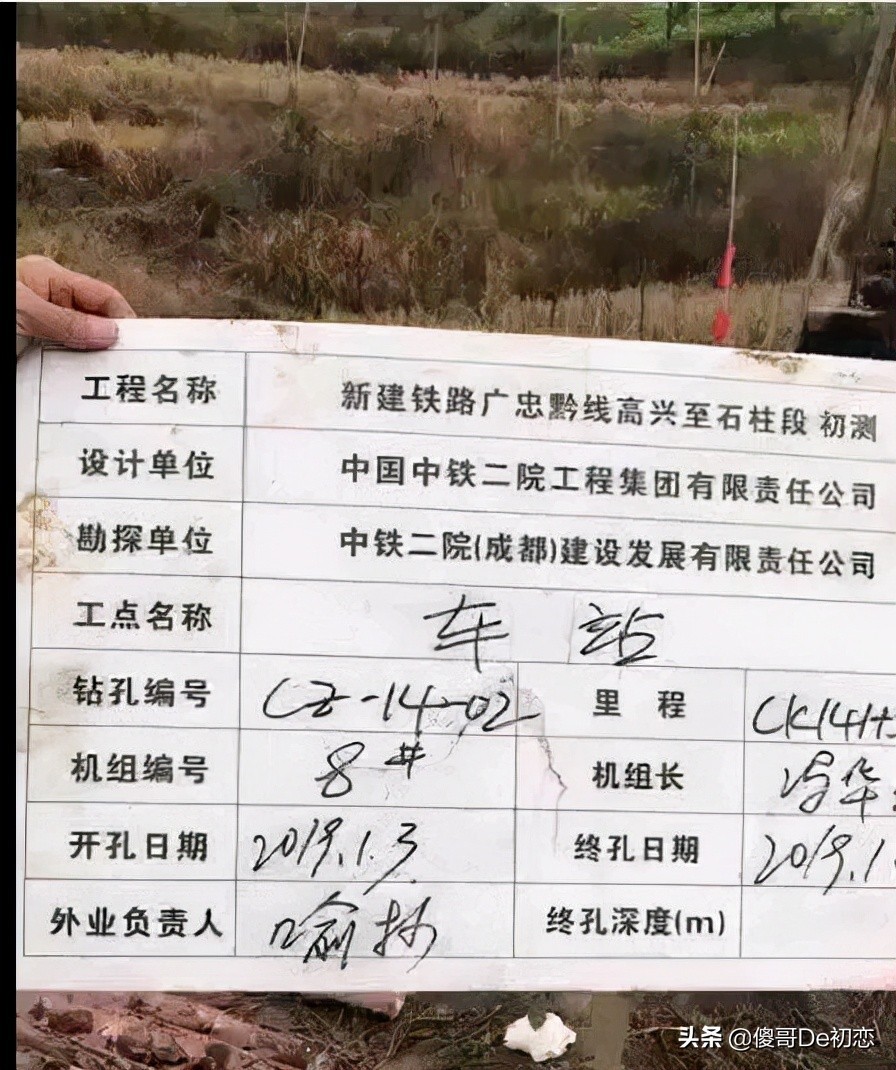 工程名称 新建铁路广忠黔线高兴至石柱段 初测
设计单位 中国中铁二院工程集团有限责任公司
勘探单位 中铁二院(成都)建设发展有限责任公司
工点名称 车 站
钻孔编号 CZ-14-02 里 程 CK141+
机组编号 8# 机组长 冯华
开孔日期 2019.1.3 终孔日期 2019.1
外业负责人 终孔深度(m)
头条 @傻哥De初恋